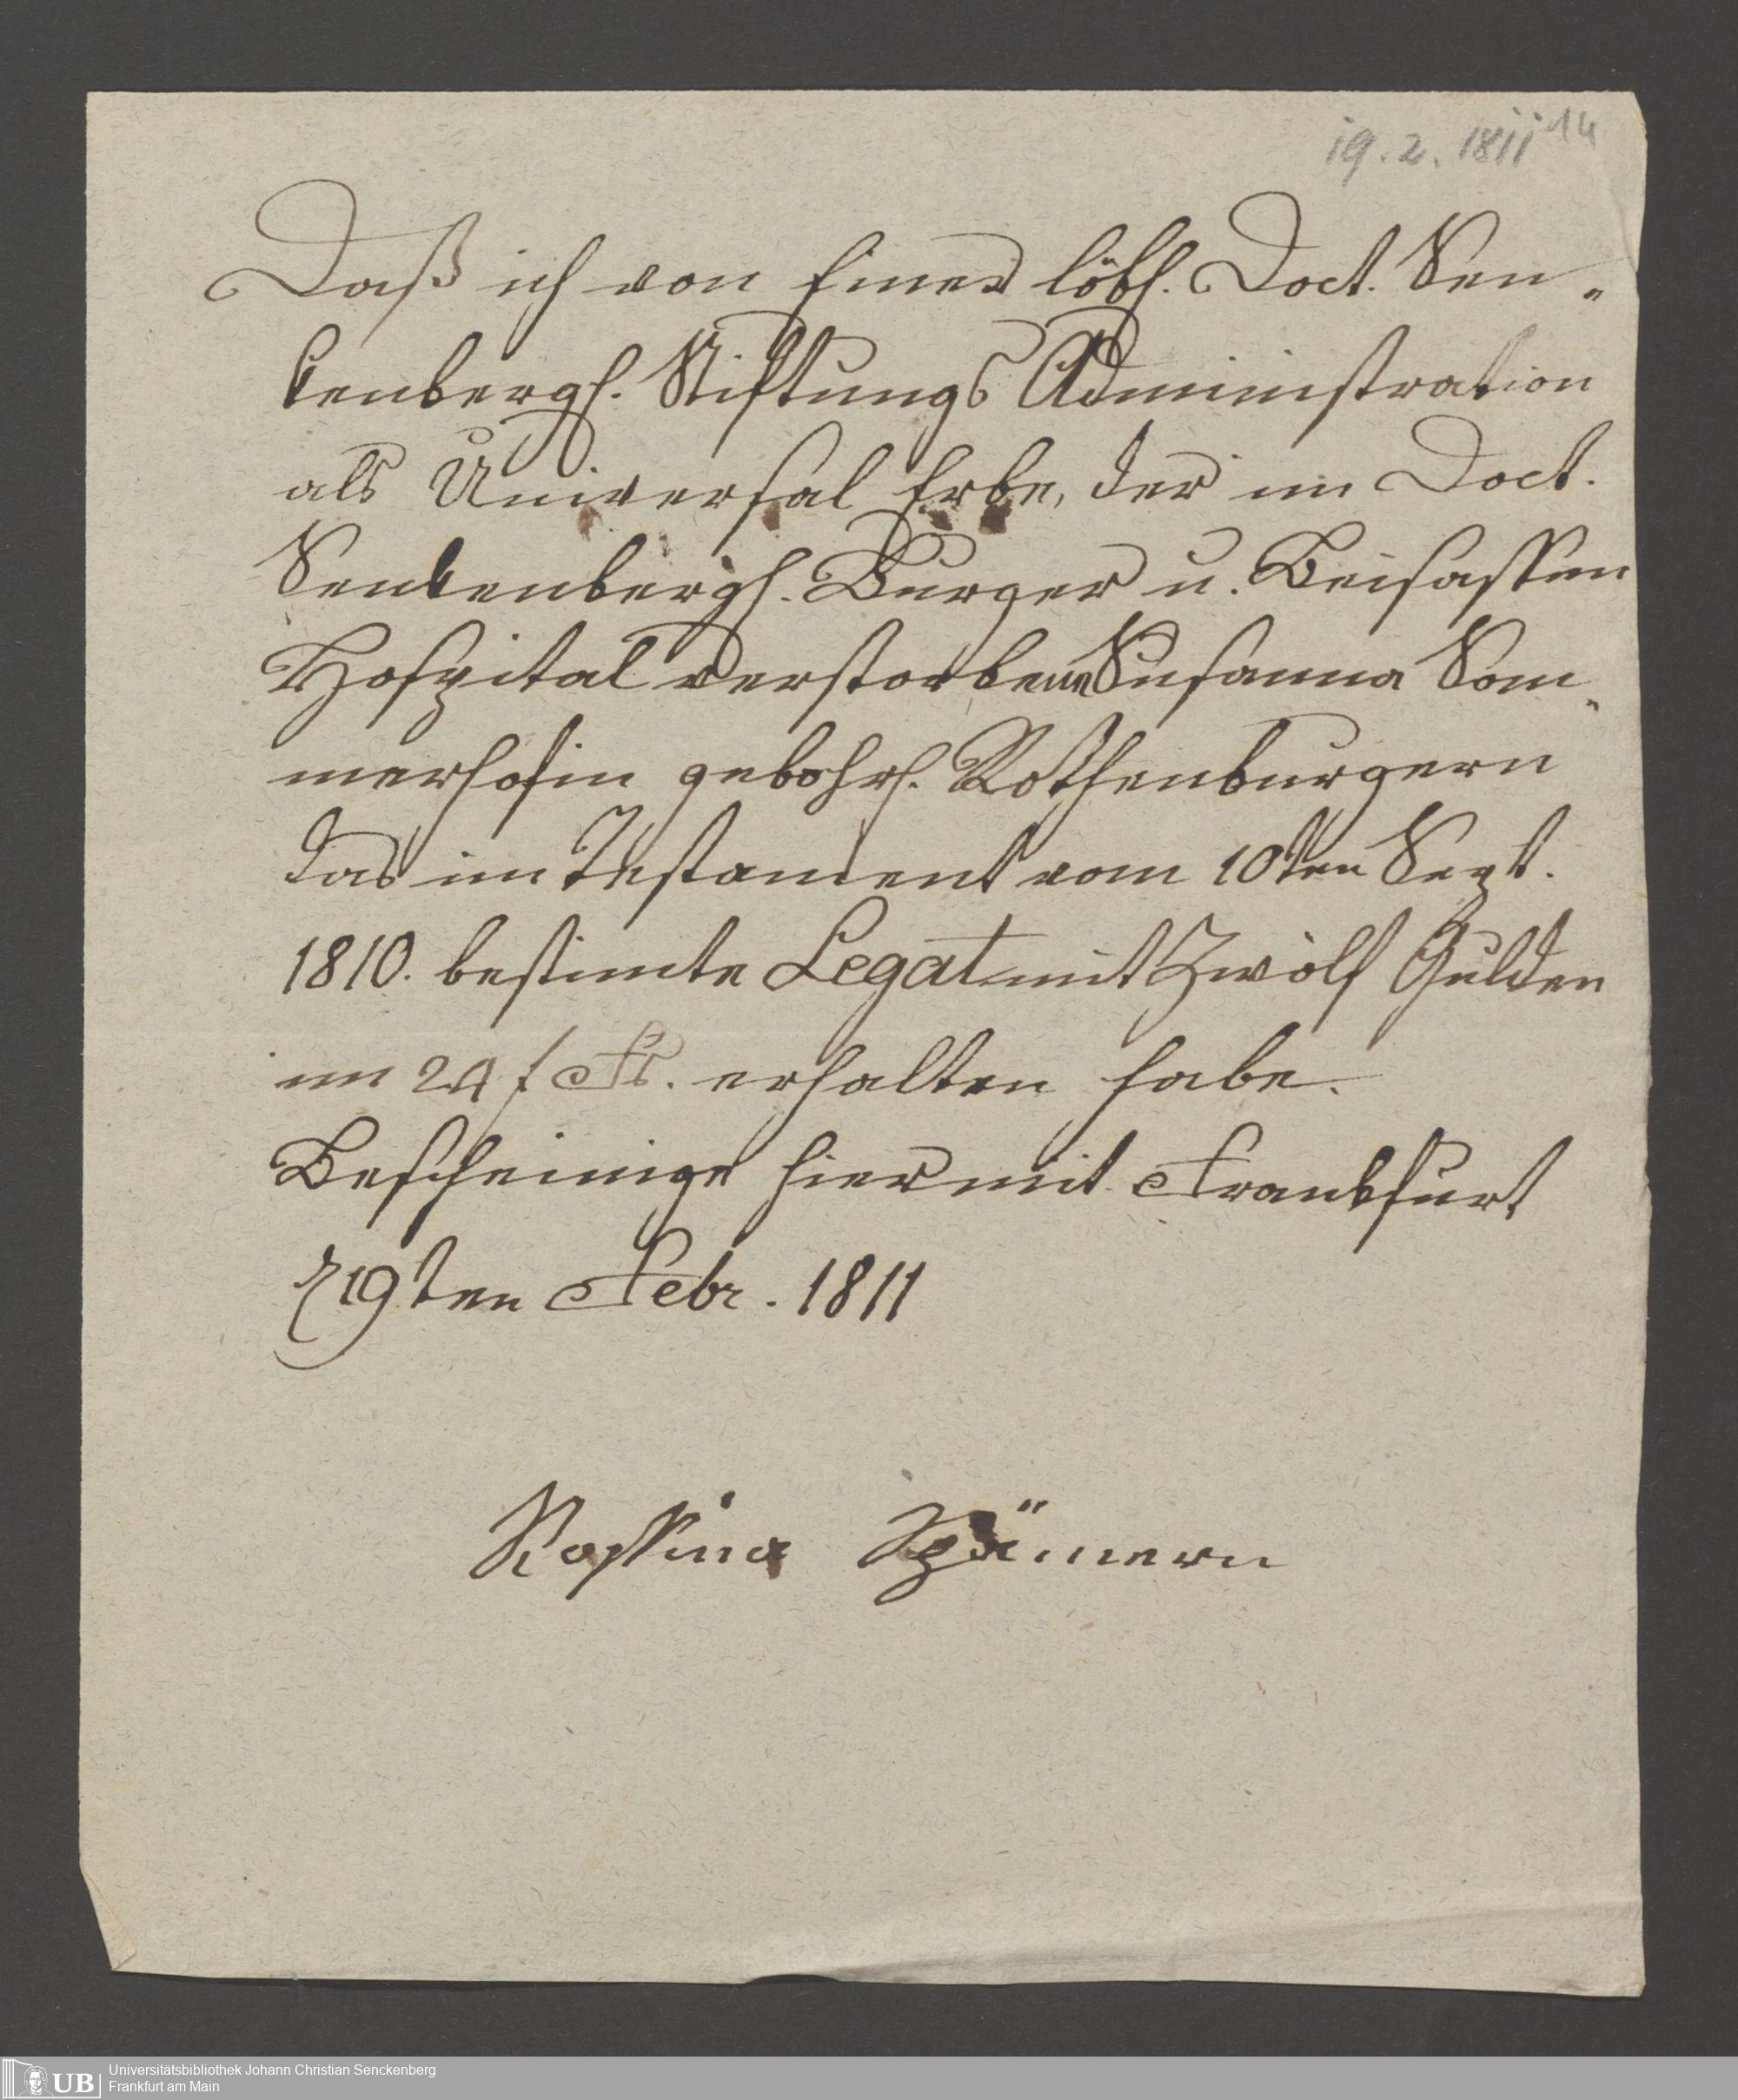 19.2.1811 14
Daß ich von Einer löbl. Doct. Sen„
kenbergl. Stiftungs Administration
als Universal Erbe, der im Doct.
Senkenbergl. Burger u. Beisassen
Hospital verstorbenen Susanna Som„
merhofin gebohrl. Rothenburgern
das im Testament vom 10ten Sept.
1810. bestimte Legat mit Zwölf Gulden
im 24 f Fs. erhalten habe.
Bescheinige hiermit Frankfurt
d 19ten Febr. 1811
Rossina
UB Universitätsbibliothek Johann Christian Senckenberg
Frankfurt am Main